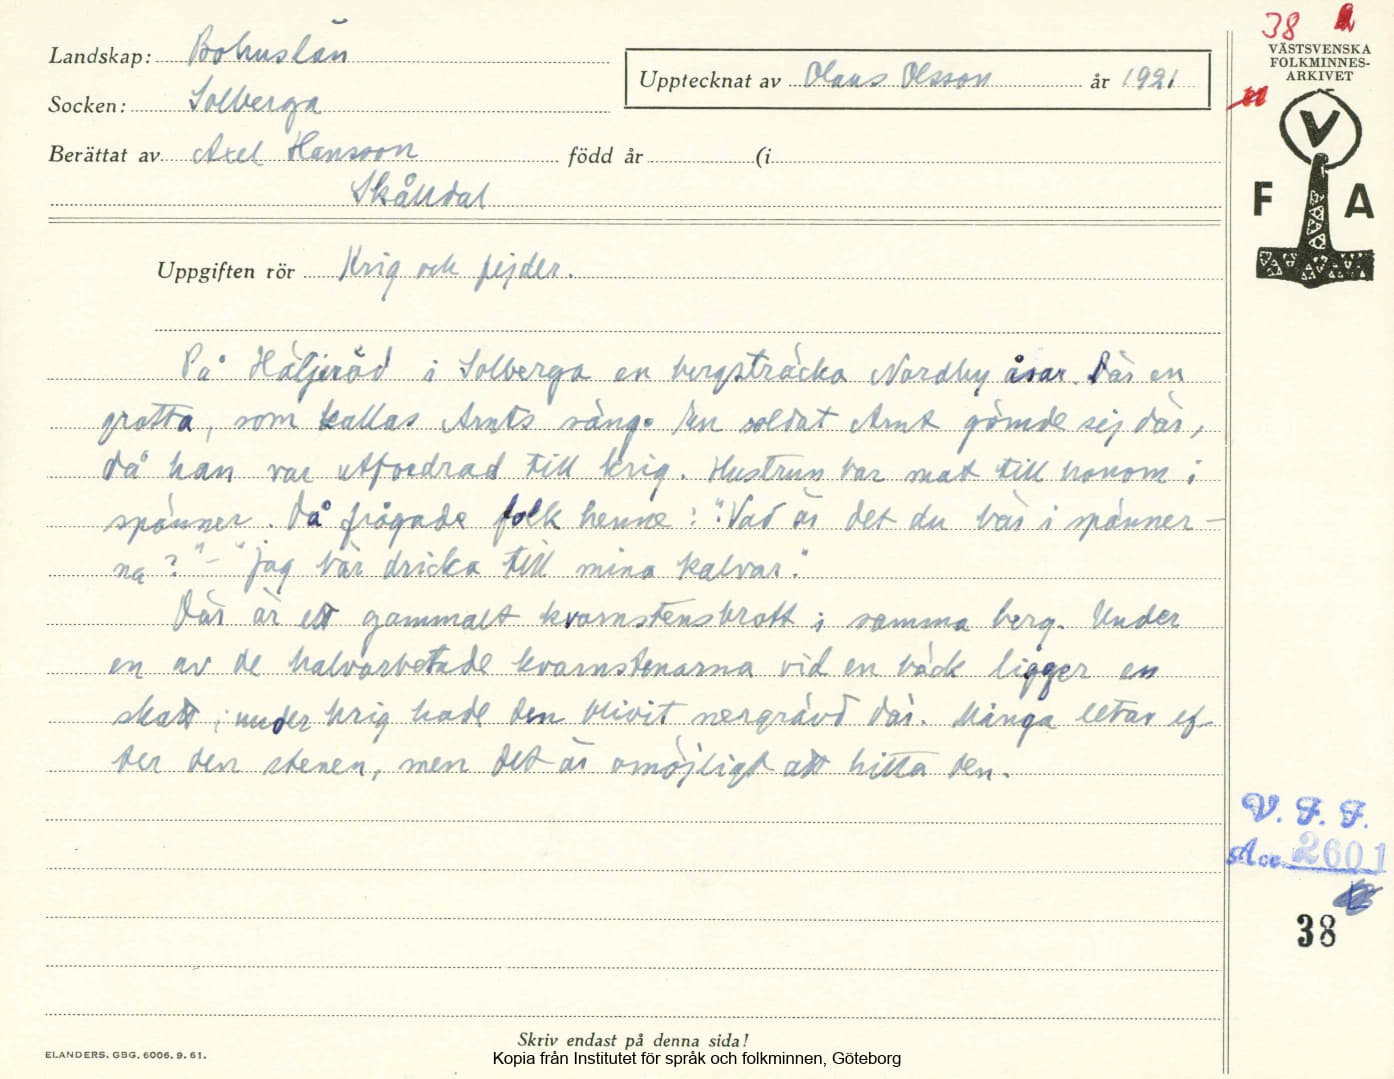 Landskap: Bohuslän
Socken: Solberga
Berättat av Axel Hansson född år (i
Skålldal
Upptecknat av Olaus Olsson år 1921
38
VÄSTSVENSKA
FOLKMINNES-
ARKIVET
V
F A
Uppgiften rör Krig och fejder.
På Häljeröd i Solberga en bergsträcka Nordby åsar. Där en
grotta, som kallas Arnts säng. En soldat Arnt gömde sej där,
då han var utfordrad till krig. Hustrun bar mat till honom i
spänner. Då frågade folk henne: "Vad är det du bär i spänner-
na?" - "Jag bär dricka till mina kalvar."
Där är ett gammalt kvarnstensbrott i samma berg. Under
en av de halvarbetade kvarnstenarna vid en bäck ligger en
skatt; under krig hade den blivit nergrävd där. Många letar ef-
ter den stenen, men det är omöjligt att hitta den.
V. F. F.
Acc. 2601
38
Skriv endast på denna sida!
ELANDERS. GBG. 6006. 9. 61.
Kopia från Institutet för språk och folkminnen, Göteborg